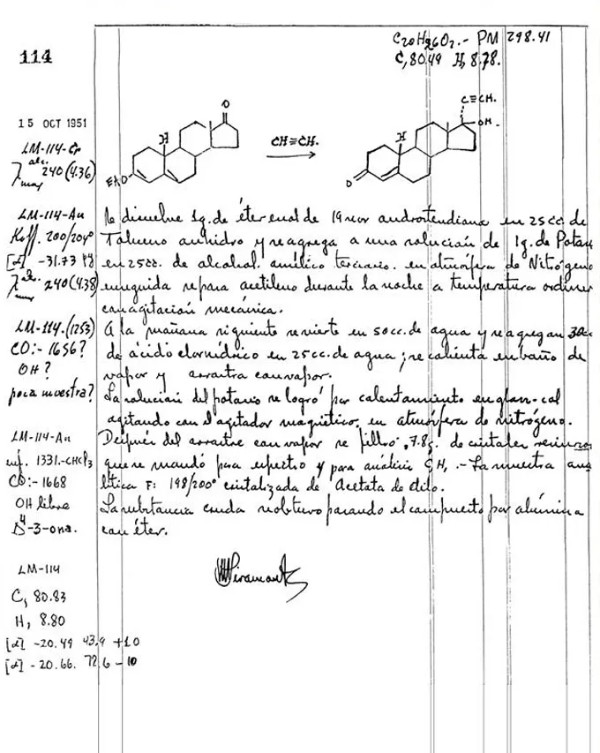 C20H26O2.- PM 298.41
C, 80.49 H, 8.78.
114
15 OCT 1951
O
C≡CH.
OH.
CH≡CH.
H
H
EtO
O
LM-114-Cr
λ alc. max 240 (4.36)
LM-114-An
Koff. 200/204°
[α] -31.73
λ alc. max 240 (4.38)
LM-114. (1253)
CO:- 1656?
OH?
poca muestra?
LM-114-An
inf. 1331.-CHCl3
CO:- 1668
OH libre
Δ4-3-ona.
LM-114
C, 80.83
H, 8.80
[α] -20.49 43.9 +10
[α] -20.66. 72.6 -10
Se disuelve 1g. de éter enol de 19 nor androstendiona en 25cc de
Tolueno anhidro y se agrega a una solución de 1g. de Potasio
en 25cc. de alcohol amílico terciario. en atmósfera de Nitrógeno
enseguida se pasa acetileno durante la noche a temperatura ordinar
con agitación mecánica.
A la mañana siguiente se vierte en 50cc. de agua y se agregan 30cc
de ácido clorhídrico en 25cc. de agua; se calienta en baño de
vapor y arrastra con vapor.
La solución del potasio se logró por calentamiento en glas-col
agitando con el agitador magnético, en atmósfera de nitrógeno.
Después del arrastre con vapor se filtró, 7.8g. de cristales
que se mandó para espectro y para análisis C,H, .- La muestra ana
lítica F: 198/200° cristalizada de Acetato de etilo.
La substancia cruda se obtuvo pasando el compuesto por alúmina
con éter.